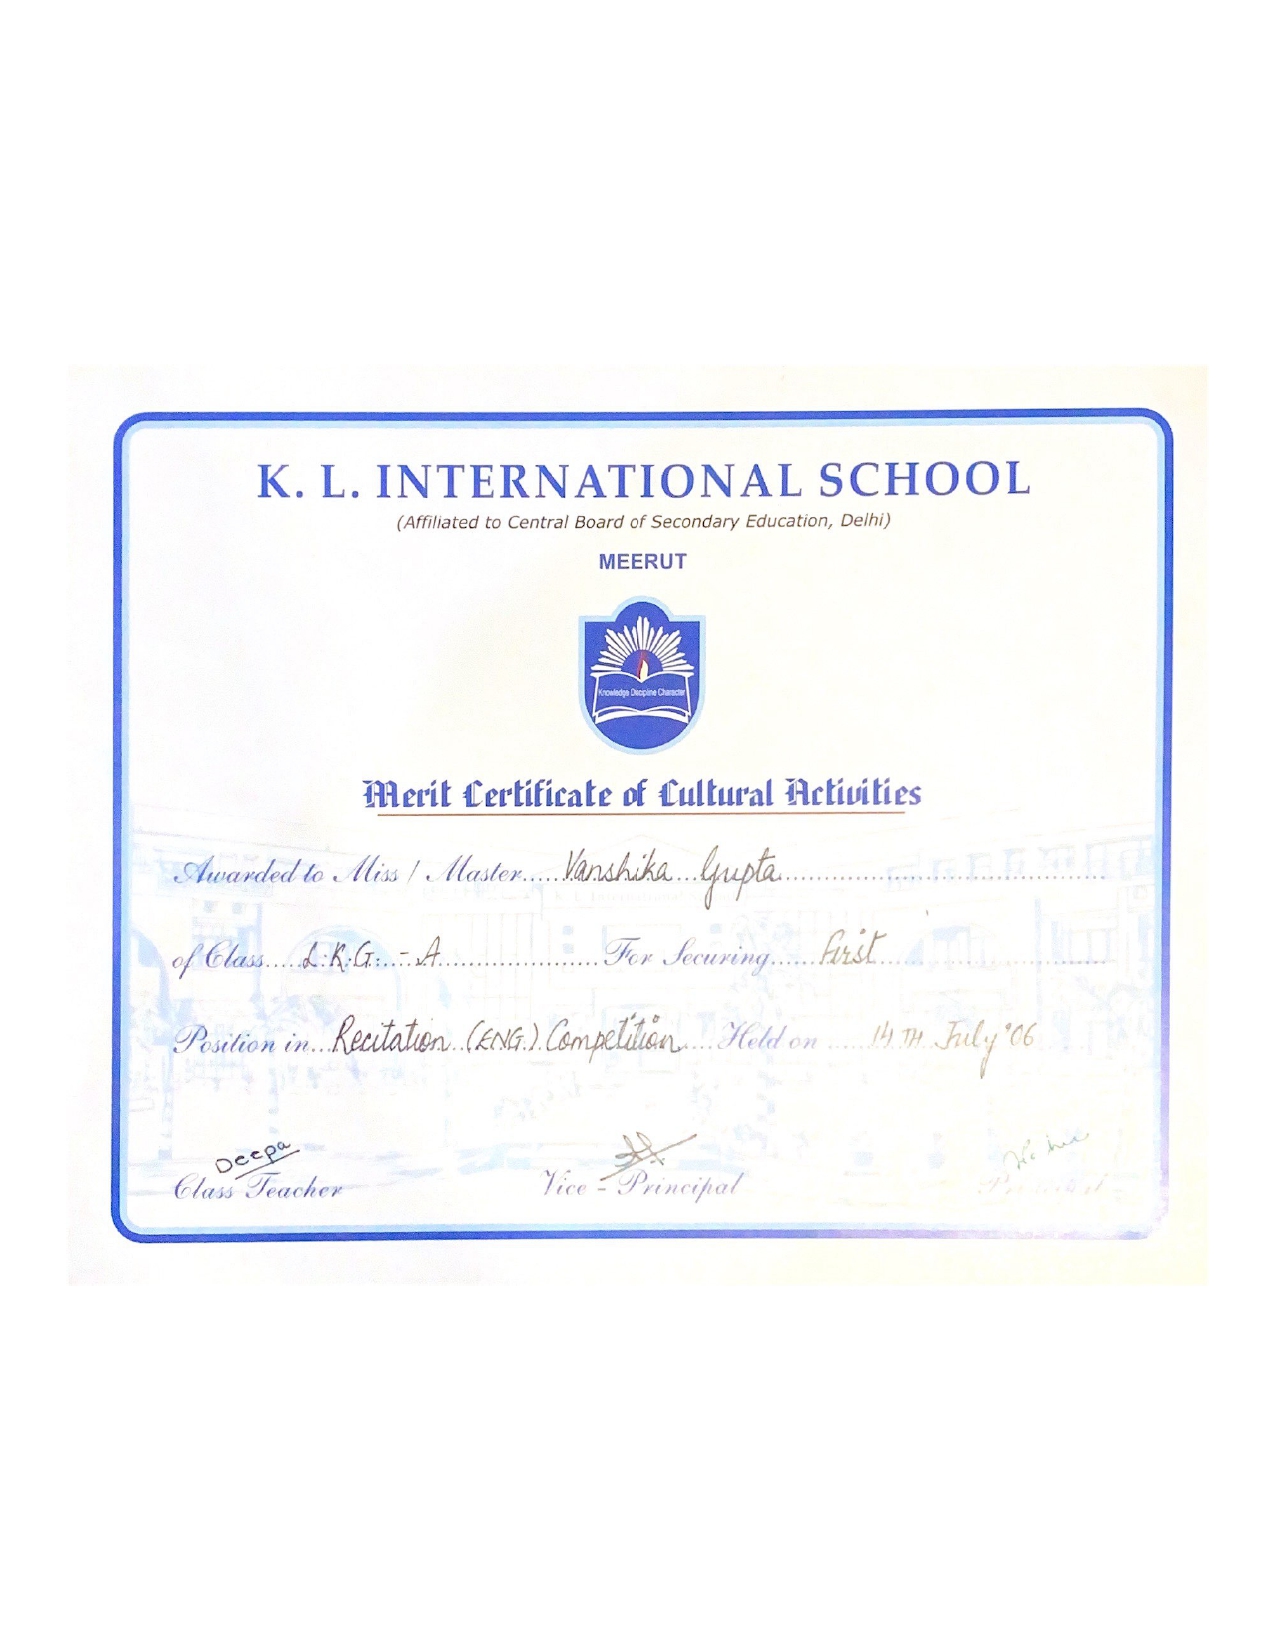 K. L. INTERNATIONAL SCHOOL
(Affiliated to Central Board of Secondary Education, Delhi)
MEERUT
Knowledge Discipline Character
Merit Certificate of Cultural Activities
Awarded to Miss / Master.....Vanshika Gupta
of Class.....L.K.G. - A..........For Securing.....First
Position in...Recitation (ENG.) Competition....Held on.....14 TH July '06
Deepa
Class Teacher Vice - Principal Principal